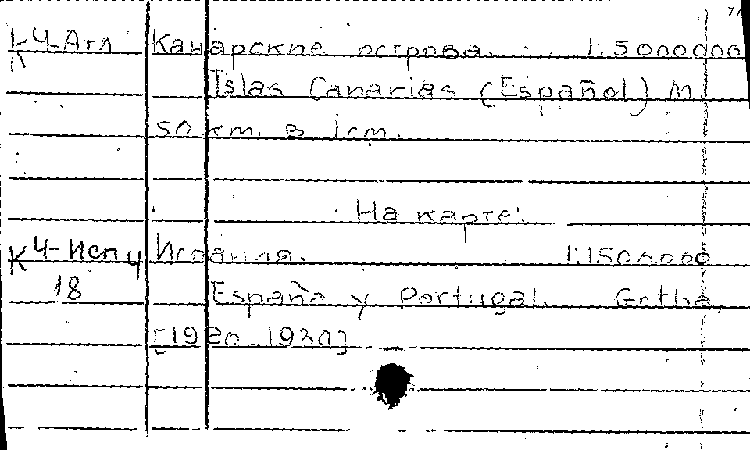 К 4-Атл Канарские острова. 1:5000000
Islas Canarias (Español) M.
50 km. в 1cm.
На карте:
К 4-Исп 4 Испания. 1:1500000
18 España y Portugal. Gotha,
[1920-1930]